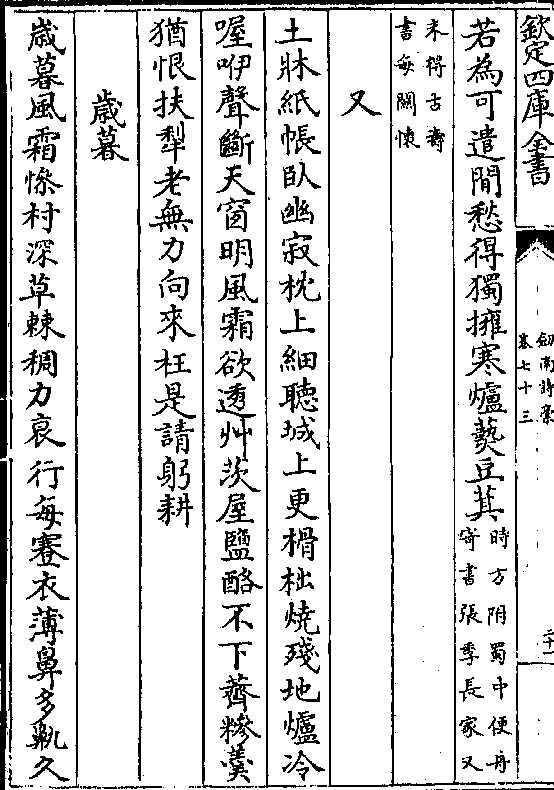 欽定四庫全書
劒南詩藁
卷七十三
二十一
若為可遣閒愁得獨擁寒爐爇豆萁時方附蜀中便舟
寄書張季長家又
未得古壽
書每關懷
又
土牀紙帳臥幽寂枕上細聽城上更榾柮燒殘地爐冷
喔咿聲斷天窗明風霜欲透艸茨屋鹽酪不下薺糝羮
猶恨扶犁老無力向來枉是請躬耕
歳暮
歳暮風霜惨村深草棘稠力衰行每蹇衣薄鼻多鼽久